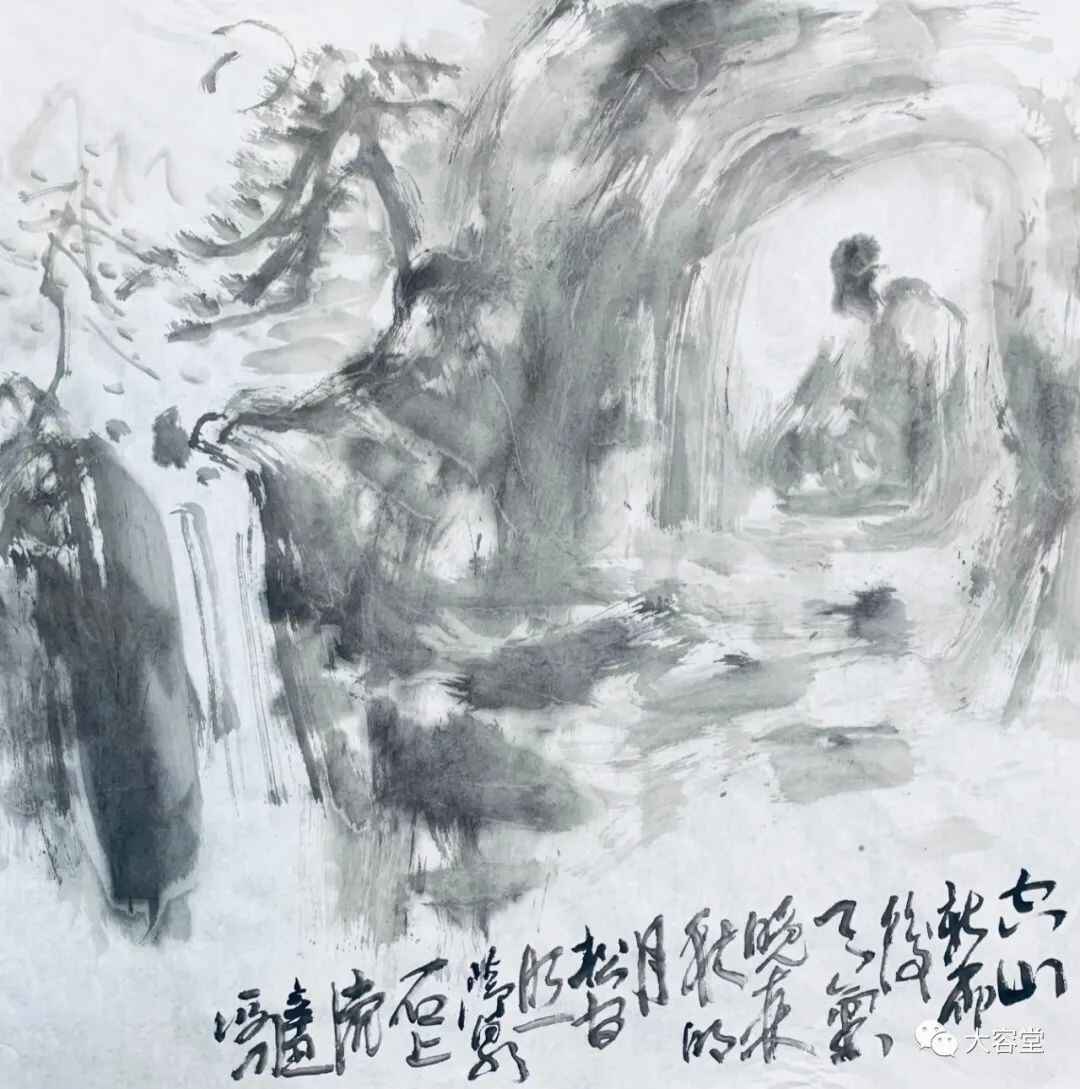 空山
新雨
後
天氣
晚来
秋明
月
松间
照
清泉
石上
流
大容堂